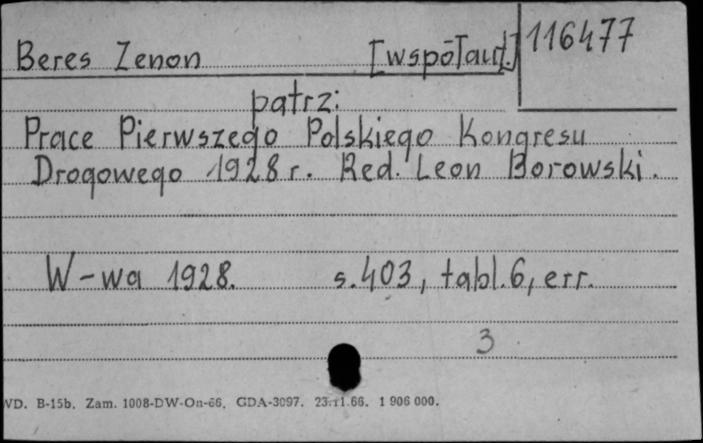 Beres Zenon [współaut.] 116477
patrz:
Prace Pierwszego Polskiego Kongresu
Drogowego 1928 r. Red. Leon Borowski.
W-wa 1928. s. 403, tabl. 6, err.
3
WD. B-15b. Zam. 1008-DW-On-66. GDA-3097. 23.11.66. 1 906 000.